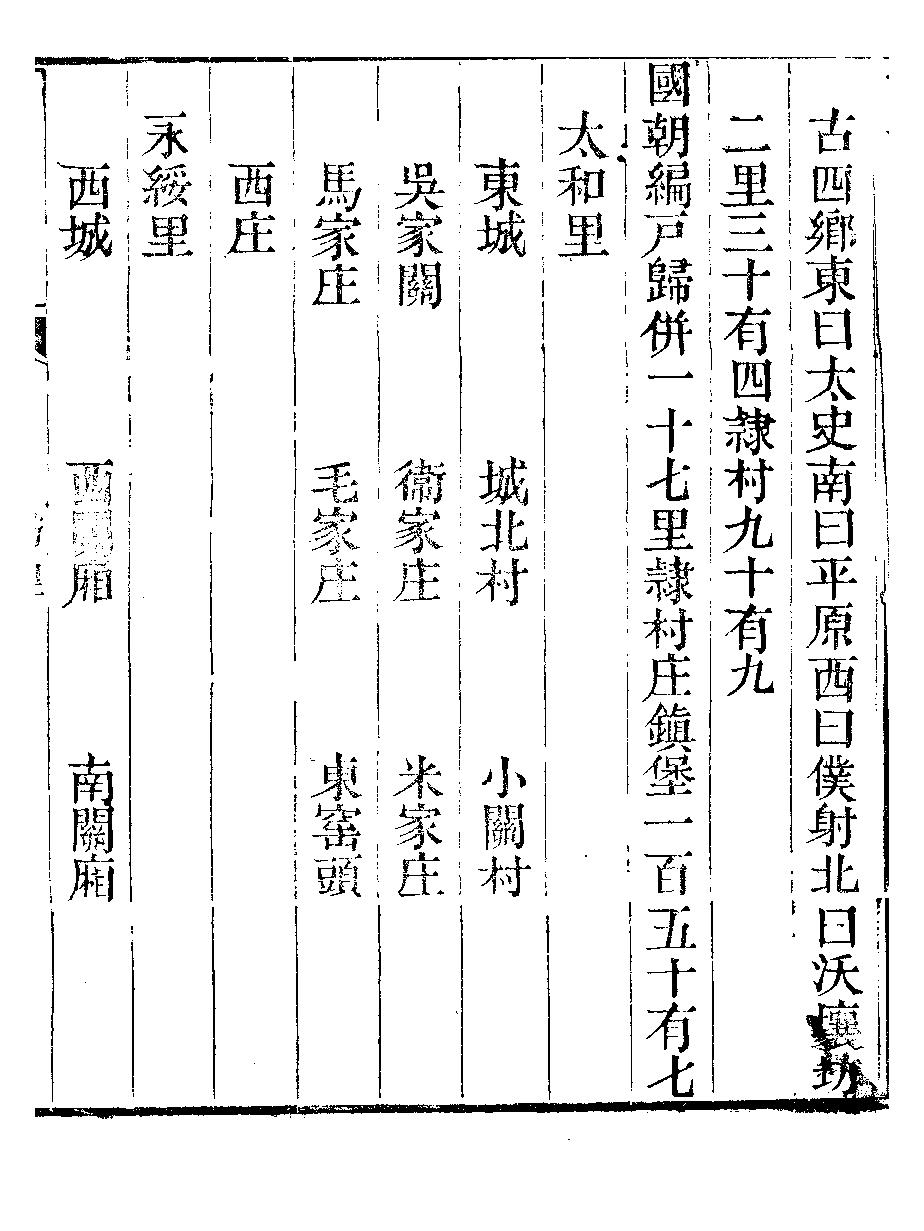 古四鄉東曰太史南曰平原西曰僕射北曰沃壤坊
二里三十有四隸村九十有九
國朝編戸歸併一十七里隸村庄鎮堡一百五十有七
太和里
東城　城北村　小關村
吳家關　衞家庄　米家庄
馬家庄　毛家庄　東窑頭
西庄
永綏里
西城　西關廂　南關廂